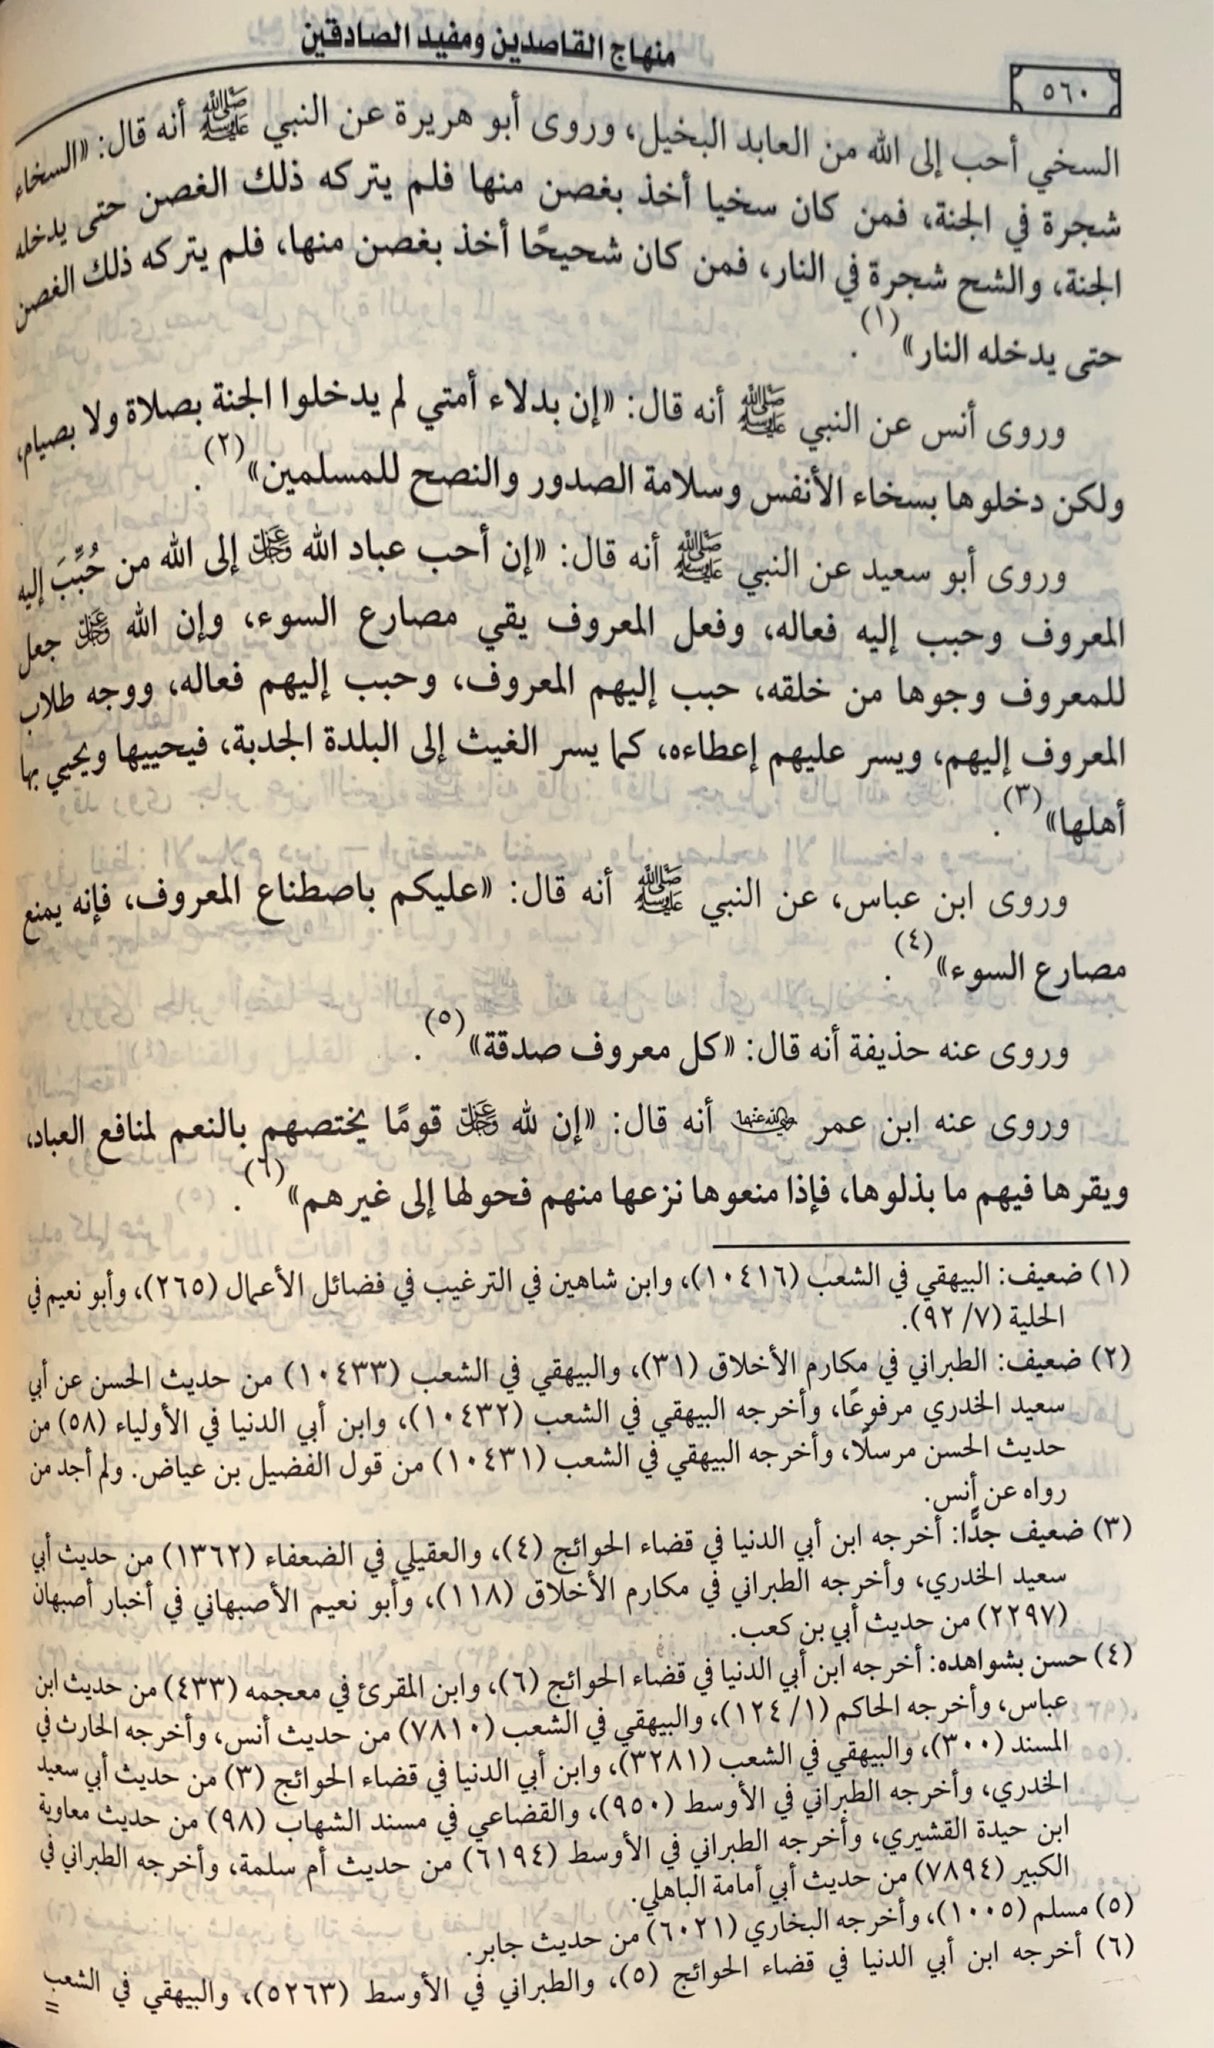 منهاج القاصدين ومفيد الصادقين
٥٦٠
السخي أحب إلى الله من العابد البخيل، وروى أبو هريرة عن النبي ﷺ أنه قال: «السخاء
شجرة في الجنة، فمن كان سخيا أخذ بغصن منها فلم يتركه ذلك الغصن حتى يدخله
الجنة، والشح شجرة في النار، فمن كان شحيحًا أخذ بغصن منها، فلم يتركه ذلك الغصن
حتى يدخله النار»(١).
وروى أنس عن النبي ﷺ أنه قال: «إن بدلاء أمتي لم يدخلوا الجنة بصلاة ولا بصيام،
ولكن دخلوها بسخاء الأنفس وسلامة الصدور والنصح للمسلمين»(٢).
وروى أبو سعيد عن النبي ﷺ أنه قال: «إن أحب عباد الله عَزَّوَجَلَّ إلى الله من حُبِّبَ إليه
المعروف وحبب إليه فعاله، وفعل المعروف يقي مصارع السوء، وإن الله عَزَّوَجَلَّ جعل
للمعروف وجوها من خلقه، حبب إليهم المعروف، وحبب إليهم فعاله، ووجه طلاب
المعروف إليهم، ويسر عليهم إعطاءه، كما يسر الغيث إلى البلدة الجدبة، فيحييها ويحيي بها
أهلها»(٣).
وروى ابن عباس، عن النبي ﷺ أنه قال: «عليكم باصطناع المعروف، فإنه يمنع
مصارع السوء»(٤).
وروى عنه حذيفة أنه قال: «كل معروف صدقة»(٥).
وروى عنه ابن عمر رضي الله عنهما أنه قال: «إن لله عَزَّوَجَلَّ قومًا يختصهم بالنعم لمنافع العباد،
ويقرها فيهم ما بذلوها، فإذا منعوها نزعها منهم فحولها إلى غيرهم»(٦).
(١) ضعيف: البيهقي في الشعب (١٠٤١٦)، وابن شاهين في الترغيب في فضائل الأعمال (٢٦٥)، وأبو نعيم في
الحلية (٧/ ٩٢).
(٢) ضعيف: الطبراني في مكارم الأخلاق (٣١)، والبيهقي في الشعب (١٠٤٣٣) من حديث الحسن عن أبي
سعيد الخدري مرفوعًا، وأخرجه البيهقي في الشعب (١٠٤٣٢)، وابن أبي الدنيا في الأولياء (٥٨) من
حديث الحسن مرسلًا، وأخرجه البيهقي في الشعب (١٠٤٣١) من قول الفضيل بن عياض. ولم أجد من
رواه عن أنس.
(٣) ضعيف جدًّا: أخرجه ابن أبي الدنيا في قضاء الحوائج (٤)، والعقيلي في الضعفاء (١٣٦٢) من حديث أبي
سعيد الخدري، وأخرجه الطبراني في مكارم الأخلاق (١١٨)، وأبو نعيم الأصبهاني في أخبار أصبهان
(٢٢٩٧) من حديث أبي بن كعب.
(٤) حسن بشواهده: أخرجه ابن أبي الدنيا في قضاء الحوائج (٦)، وابن المقرئ في معجمه (٤٣٣) من حديث ابن
عباس، وأخرجه الحاكم (١/ ١٢٤)، والبيهقي في الشعب (٧٨١٠) من حديث أنس، وأخرجه الحارث في
المسند (٣٠٠)، والبيهقي في الشعب (٣٢٨١)، وابن أبي الدنيا في قضاء الحوائج (٣) من حديث أبي سعيد
الخدري، وأخرجه الطبراني في الأوسط (٩٥٠)، والقضاعي في مسند الشهاب (٩٨) من حديث معاوية
ابن حيدة القشيري، وأخرجه الطبراني في الأوسط (٦١٩٤) من حديث أم سلمة، وأخرجه الطبراني في
الكبير (٧٨٩٤) من حديث أبي أمامة الباهلي.
(٥) مسلم (١٠٠٥)، وأخرجه البخاري (٦٠٢١) من حديث جابر.
(٦) أخرجه ابن أبي الدنيا في قضاء الحوائج (٥)، والطبراني في الأوسط (٥٢٦٣)، والبيهقي في الشعب
=